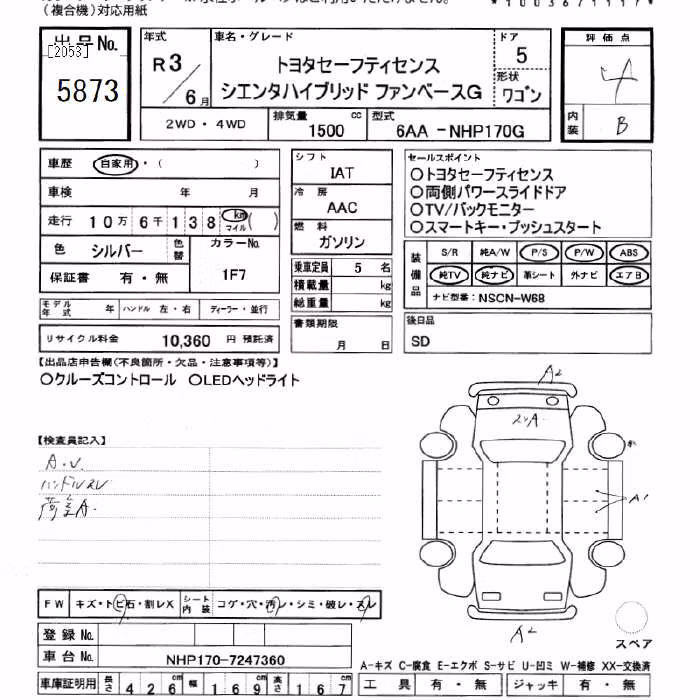 (複合機)対応用紙
出品No.
[2053]
5873
年式
R3/6月
車名・グレード
トヨタセーフティセンス
シエンタハイブリッド ファンベースG
ドア
5
形状
ワゴン
評価点
4
内装
B
2WD・4WD
排気量
1500 cc
型式
6AA-NHP170G
車歴 自家用・( )
車検 年 月
走行 10万6千138 km マイル ( )
色 シルバー 色替
カラーNo.
1F7
保証書 有・無
モデル年式 年 ハンドル 左・右 ディーラー・並行
リサイクル料金 10,360 円 預託済
シフト
IAT
冷房
AAC
燃料
ガソリン
乗車定員 5 名
積載量 kg
総重量 kg
書類期限
月 日
セールスポイント
○トヨタセーフティセンス
○両側パワースライドドア
○TV/バックモニター
○スマートキー・プッシュスタート
装備品
S/R 純A/W P/S P/W ABS
純TV 純ナビ 革シート 外ナビ エアB
ナビ型番: NSCN-W68
後日品
SD
【出品店申告欄(不良箇所・欠品・注意事項等)】
○クルーズコントロール ○LEDヘッドライト
【検査員記入】
A.U.
ハンドルスレ
A2
A
A1
A2
スペア
FW キズ・トビ石・割レX
シート内装 コゲ・穴・汚レ・シミ・破レ・スレ
登録No.
車台No. NHP170-7247360
車庫証明用 長さ 426cm 幅 169cm 高さ 167cm
A-キズ C-腐食 E-エクボ S-サビ U-凹ミ W-補修 XX-交換済
工具 有・無 ジャッキ 有・無